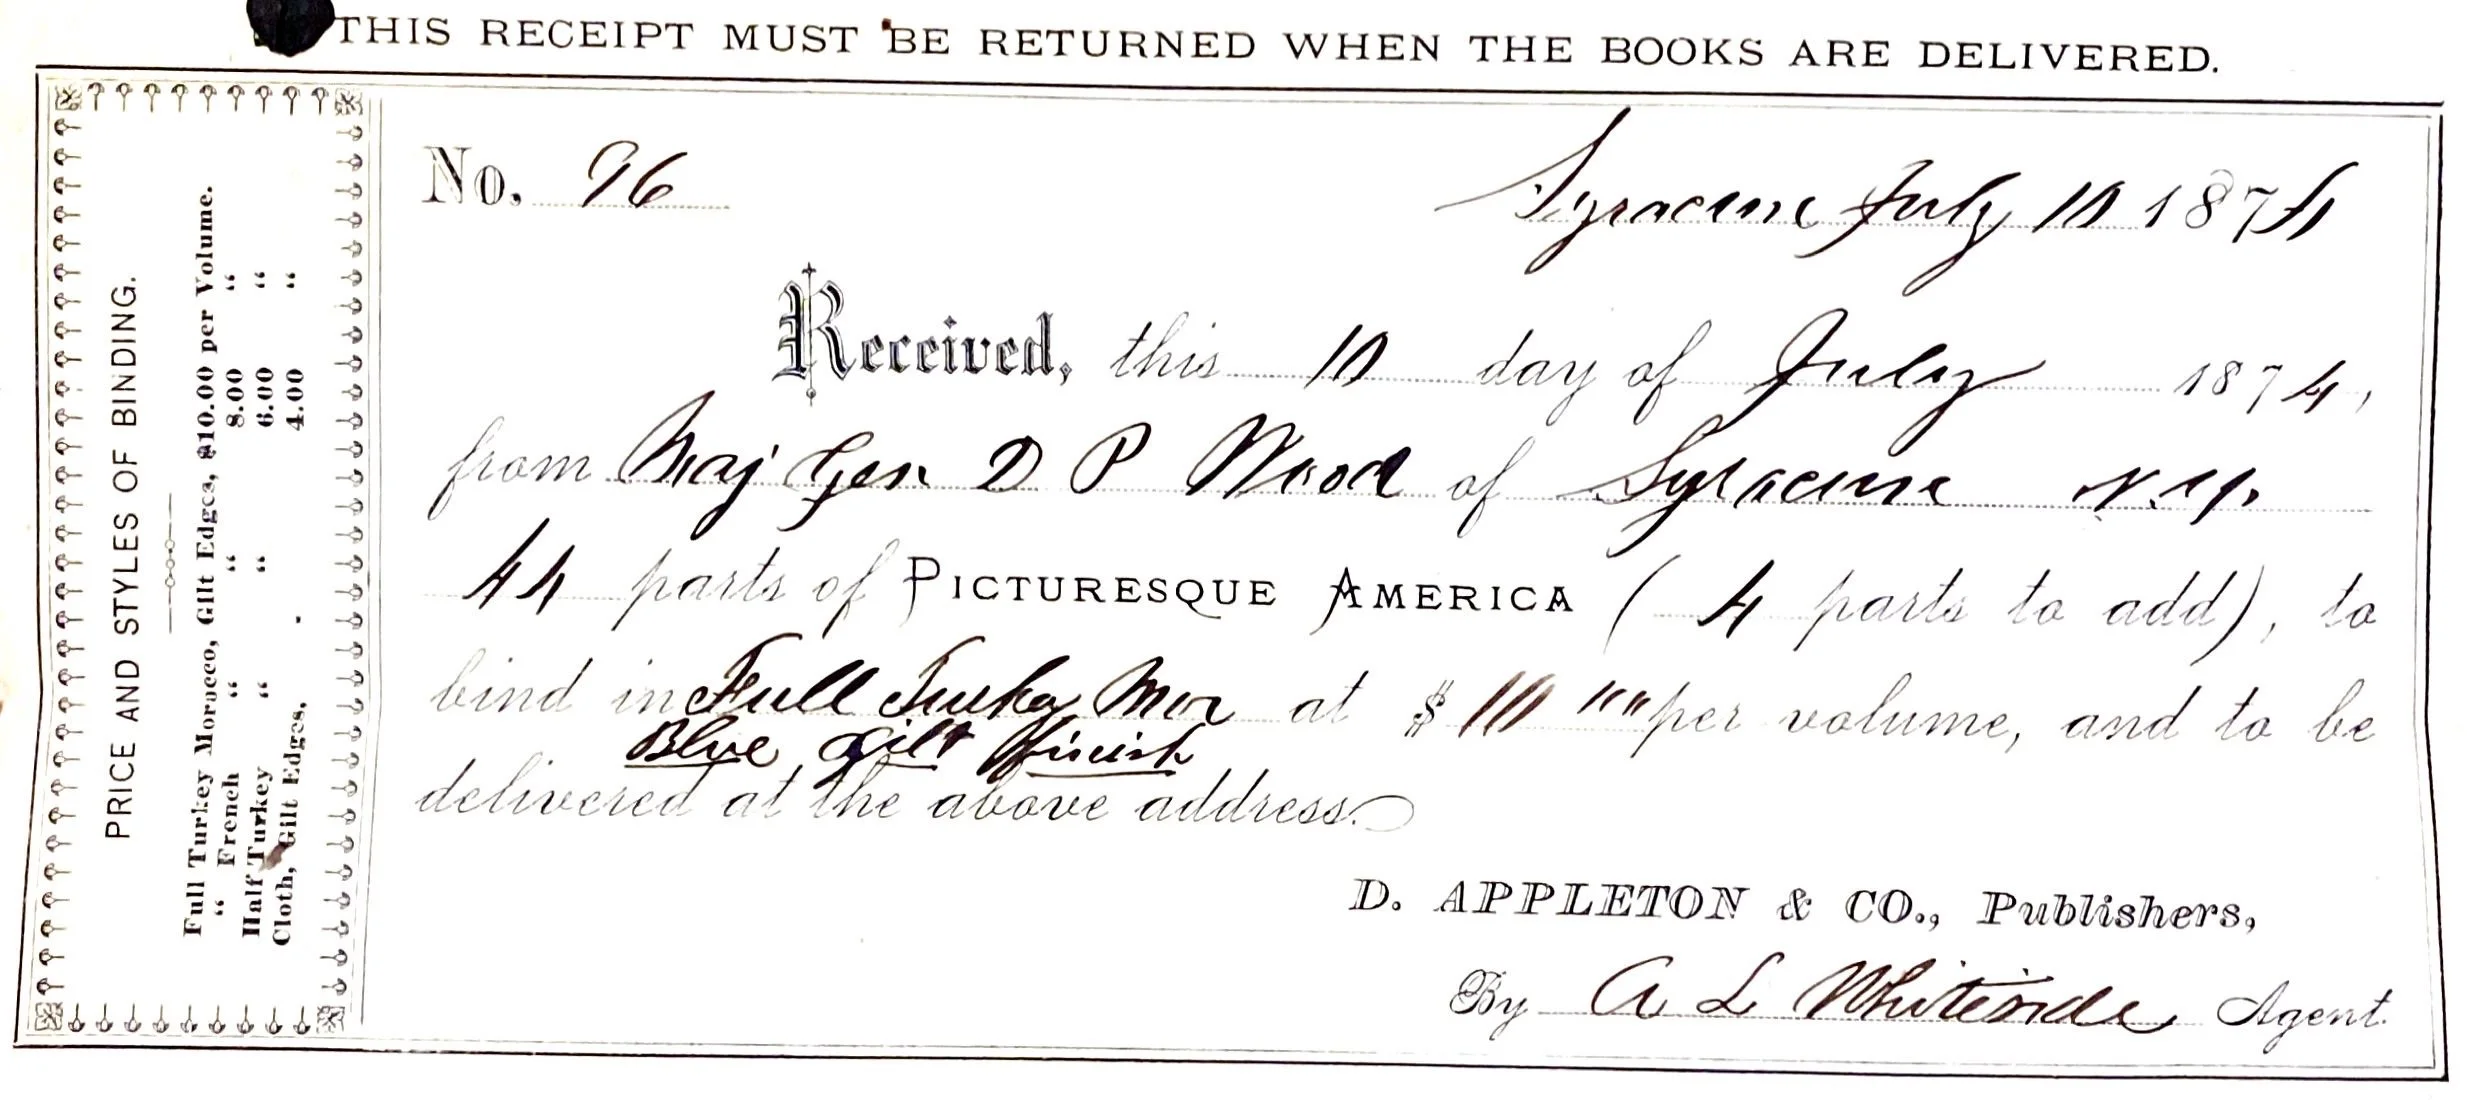 THIS RECEIPT MUST BE RETURNED WHEN THE BOOKS ARE DELIVERED.
PRICE AND STYLES OF BINDING.
Full Turkey Morocco, Gilt Edges, $10.00 per Volume.
“ French “ “ 8.00 “
Half Turkey “ “ 6.00 “
Cloth, Gilt Edges, - 4.00 “
No. 96
Syracuse July 10 1874
Received, this 10 day of July 1874,
from Maj Gen D P Wood of Syracuse N.Y.
44 parts of PICTURESQUE AMERICA (4 parts to add), to
bind in Full Turkey Mor at $ 10 "" per volume, and to be
Blue Gilt finish
delivered at the above address.
D. APPLETON & CO., Publishers,
By A L Whiteside Agent.